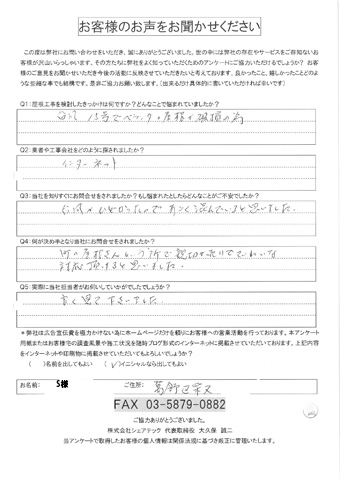 お客様のお声をお聞かせください
この度は弊社にお問い合わせをいただき、誠にありがとうございました。世の中には弊社の存在やサービスをご存知ないお
客様が沢山いらっしゃいます。その方たちに弊社をよく知っていただくためのアンケートにご協力いただけるでしょうか? お
客様のご意見をお聞かせいただき今後の活動に反映させていただきたいと考えております。良かったこと、嬉しかったことどのよ
うな些細な事でも結構です。是非ご協力お願い致します。(出来るだけ具体的に書いていただければ幸いです)
Q1:屋根工事を検討したきっかけは何ですか?どんなことで悩まれていましたか?
15号でベランダの屋根が破損の為
Q2:業者や工事会社をどのように探されましたか?
インターネット
Q3:当社を知りすぐにお問合せをされましたか?もし悩まれたとしたらどんなことがご不安でしたか?
台風がひどかったので すごく混んでいると思いました。
Q4:何が決め手となり当社にお問合せをされましたか?
町の屋根さんという所で親切
対応頂けると思いました
Q5:実際に当社担当者がお伺いしていかがでしたでしょうか?
良く見て下さいました
*弊社は広告宣伝費を極力かけない為にホームページだけを頼りにお客様への営業活動を行っております。本アンケート
用紙またはお客様での調査風景や施工状況を随時ブログ形式のインターネットに掲載させていただいております。上記内容
をインターネットや印刷物に掲載させていただいてもよろしいでしょうか?
( )名前を出してもよい (✓)イニシャルなら出してもよい
お名前: S様 ご住所: 葛飾区
FAX 03-5879-0882
ご協力ありがとうございました。
株式会社シェアテック 代表取締役 大久保 誠二
当アンケートで取得したお客様の個人情報は関係法規に基づき厳正に管理いたします。